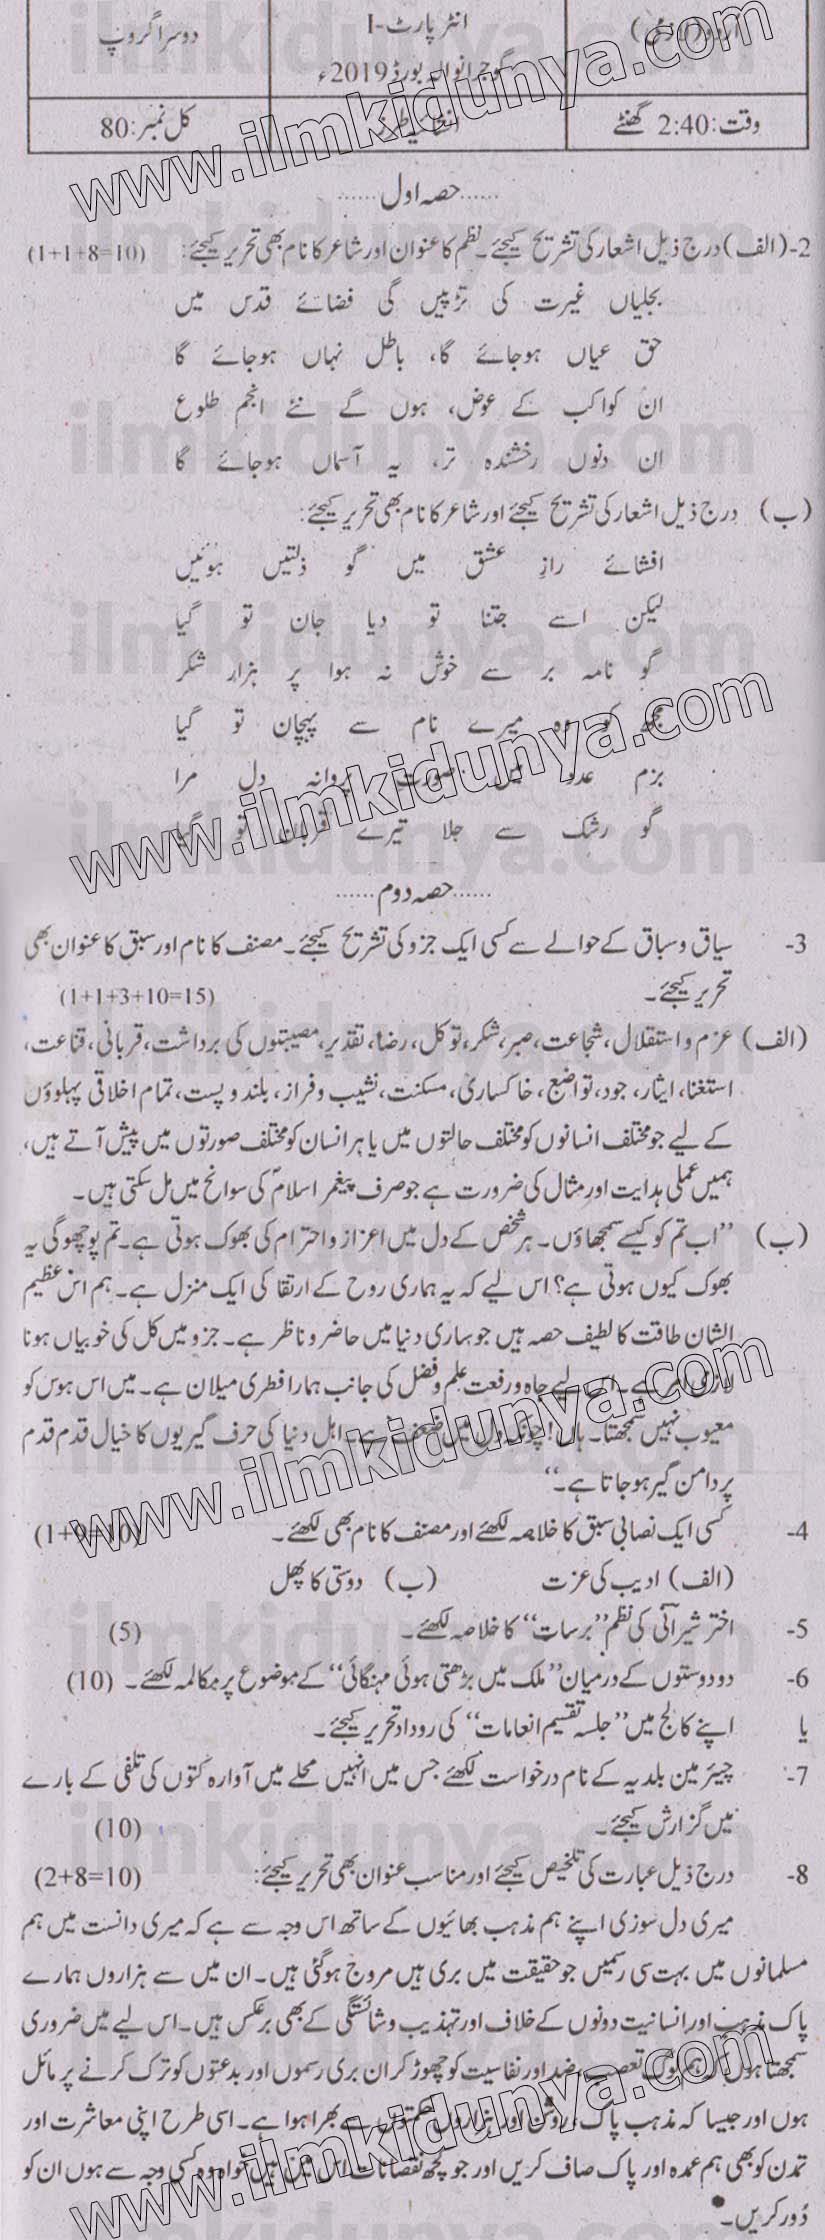 اردو (لازمی)
انٹر پارٹ-I
دوسرا گروپ
گوجرانوالہ بورڈ 2019ء
وقت: 2:40 گھنٹے
انشائیہ طرز
کل نمبر: 80
......حصہ اول......
2- (الف) درج ذیل اشعار کی تشریح کیجئے۔ نظم کا عنوان اور شاعر کا نام بھی تحریر کیجئے: (1+1+8=10)
بجلیاں غیرت کی تڑپیں گی فضائے قدس میں
حق عیاں ہو جائے گا، باطل نہاں ہو جائے گا
ان کواکب کے عوض، ہوں گے نئے انجم طلوع
ان دنوں رخشندہ تر، یہ آسماں ہو جائے گا
(ب) درج ذیل اشعار کی تشریح کیجئے اور شاعر کا نام بھی تحریر کیجئے:
افشائے رازِ عشق میں گو ذلتیں ہوئیں
لیکن اسے جتنا تو دیا جان تو گیا
گو نامہ بر سے خوش نہ ہوا پر ہزار شکر
مجھ کو وہ میرے نام سے پہچان تو گیا
بزم عدو میں صورت پروانہ دل مرا
گو رشک سے جلا تیرے قربان تو گیا
......حصہ دوم......
3- سیاق و سباق کے حوالے سے کسی ایک جزو کی تشریح کیجئے۔ مصنف کا نام اور سبق کا عنوان بھی
تحریر کیجئے۔ (1+1+3+10=15)
(الف) عزم و استقلال، شجاعت، صبر، شکر، توکل، رضا، تقدیر، مصیبتوں کی برداشت، قربانی، قناعت،
استغنا، ایثار، جود، تواضع، خاکساری، مسکنت، نشیب و فراز، بلند و پست، تمام اخلاقی پہلوؤں
کے لیے جو مختلف انسانوں کو مختلف حالتوں میں یا ہر انسان کو مختلف صورتوں میں پیش آتے ہیں،
ہمیں عملی ہدایت اور مثال کی ضرورت ہے جو صرف پیغمبر اسلامؐ کی سوانح میں مل سکتی ہیں۔
(ب) ’’اب تم کو کیسے سمجھاؤں۔ ہر شخص کے دل میں اعزاز و احترام کی بھوک ہوتی ہے۔ تم پوچھو گی یہ
بھوک کیوں ہوتی ہے؟ اس لیے کہ یہ ہماری روح کے ارتقا کی ایک منزل ہے۔ ہم اس عظیم
الشان طاقت کا لطیف حصہ ہیں جو ساری دنیا میں حاضر و ناظر ہے۔ جزو میں کل کی خوبیاں ہونا
لازمی امر ہے۔ اس لیے جاہ و رفعت علم و فضل کی جانب ہمارا فطری میلان ہے۔ میں اس ہوس کو
معیوب نہیں سمجھتا۔ ہاں! چونکہ دل میں ضعف ہے۔ اہل دنیا کی حرف گیریوں کا خیال قدم قدم
پر دامن گیر ہو جاتا ہے۔‘‘
4- کسی ایک نصابی سبق کا خلاصہ لکھئے اور مصنف کا نام بھی لکھئے۔ (1+9=10)
(الف) ادیب کی عزت (ب) دوستی کا پھل
5- اختر شیرانی کی نظم ’’برسات‘‘ کا خلاصہ لکھئے۔ (5)
6- دو دوستوں کے درمیان ’’ملک میں بڑھتی ہوئی مہنگائی‘‘ کے موضوع پر مکالمہ لکھئے۔ (10)
یا اپنے کالج میں ’’جلسہ تقسیم انعامات‘‘ کی روداد تحریر کیجئے۔
7- چیئرمین بلدیہ کے نام درخواست لکھئے جس میں انہیں محلے میں آوارہ کتوں کی تلفی کے بارے
میں گزارش کیجئے۔ (10)
8- درج ذیل عبارت کی تلخیص کیجئے اور مناسب عنوان بھی تحریر کیجئے: (2+8=10)
میری دل سوزی اپنے ہم مذہب بھائیوں کے ساتھ اس وجہ سے ہے کہ میری دانست میں ہم
مسلمانوں میں بہت سی رسمیں جو حقیقت میں بری ہیں مروج ہو گئی ہیں۔ ان میں سے ہزاروں ہمارے
پاک مذہب اور انسانیت دونوں کے خلاف اور تہذیب و شائستگی کے بھی برعکس ہیں۔ اس لیے میں ضروری
سمجھتا ہوں کہ ہم لوگ تعصب، ضد اور نفاسیت کو چھوڑ کر ان بری رسموں اور بدعتوں کو ترک کرنے پر مائل
ہوں اور جیسا کہ مذہب پاک، روشن اور ہزاروں حکمتوں سے بھرا ہوا ہے۔ اسی طرح اپنی معاشرت اور
تمدن کو بھی ہم عمدہ اور پاک صاف کریں اور جو کچھ نقصانات اس میں ہیں خواہ وہ کسی وجہ سے ہوں ان کو
دُور کریں۔
www.ilmkidunya.com
www.ilmkidunya.com
www.ilmkidunya.com
www.ilmkidunya.com